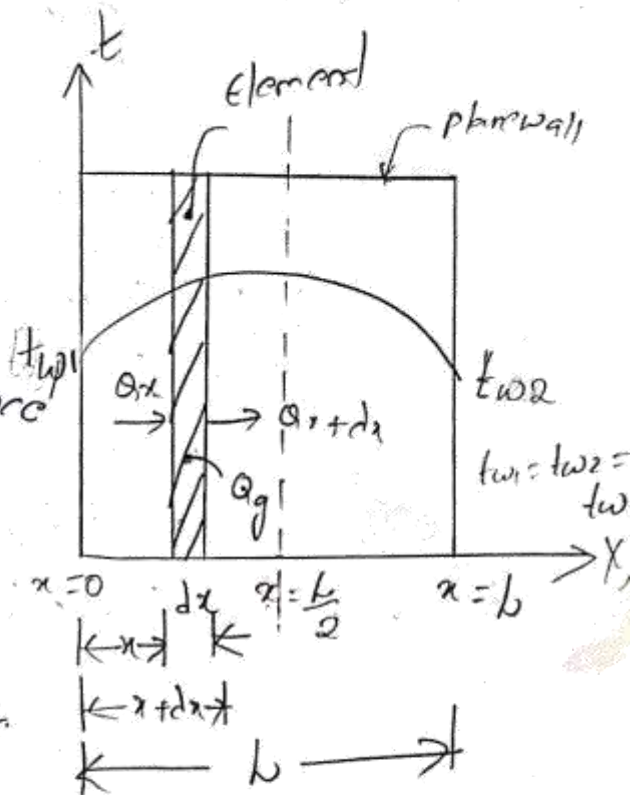 t
Element
plane wall
tw1
Qx
Qx+dx
tw2
Qg
tw1 = tw2 =
tw
X,
x=0
dx
x=L/2
x=L
x
x+dx
L